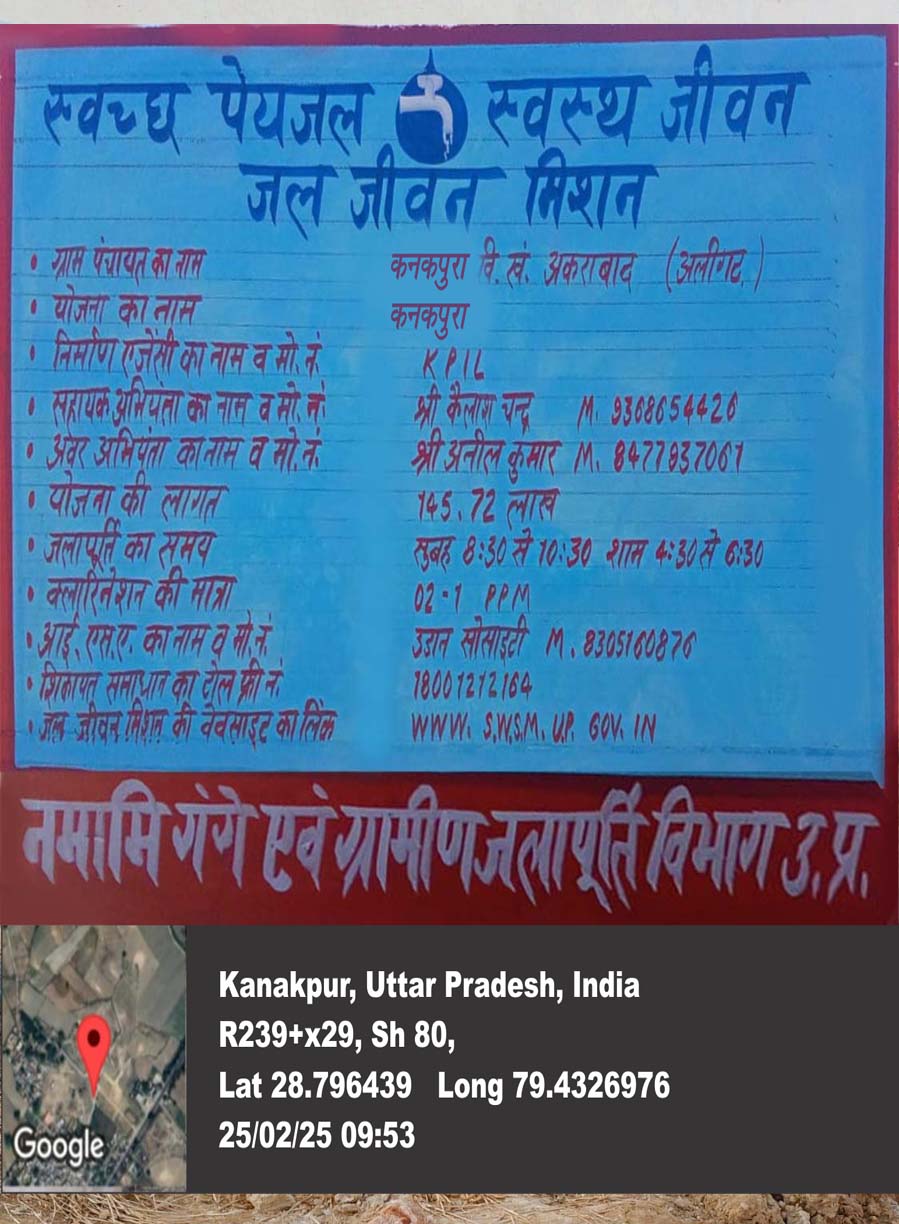 स्वच्छ पेयजल स्वस्थ जीवन
जल जीवन मिशन
• ग्राम पंचायत का नाम कनकपुरा वि.खं. अकराबाद (अलीगढ़)
• योजना का नाम कनकपुरा
• निर्माण एजेंसी का नाम व मो.नं. KPIL
• सहायक अभियंता का नाम व मो.नं. श्री कैलाश चन्द्र M. 9368654426
• अवर अभियंता का नाम व मो.नं. श्री अनील कुमार M. 8477837061
• योजना की लागत 145.72 लाख
• जलापूर्ति का समय सुबह 8:30 से 10:30 शाम 4:30 से 6:30
• क्लारिनेशन की मात्रा 02-1 PPM
• आई.एस.ए. का नाम व मो.नं. उडान सोसाइटी M. 8305160876
• शिकायत समाधान का टोल फ्री नं. 18001212164
• जल जीवन मिशन की वेवसाइट का लिंक WWW. S.W.S.M. U.P. GOV. IN
नमामि गंगे एवं ग्रामीण जलापूर्ति विभाग उ.प्र.
Kanakpur, Uttar Pradesh, India
R239+x29, Sh 80,
Lat 28.796439 Long 79.4326976
25/02/25 09:53
Google